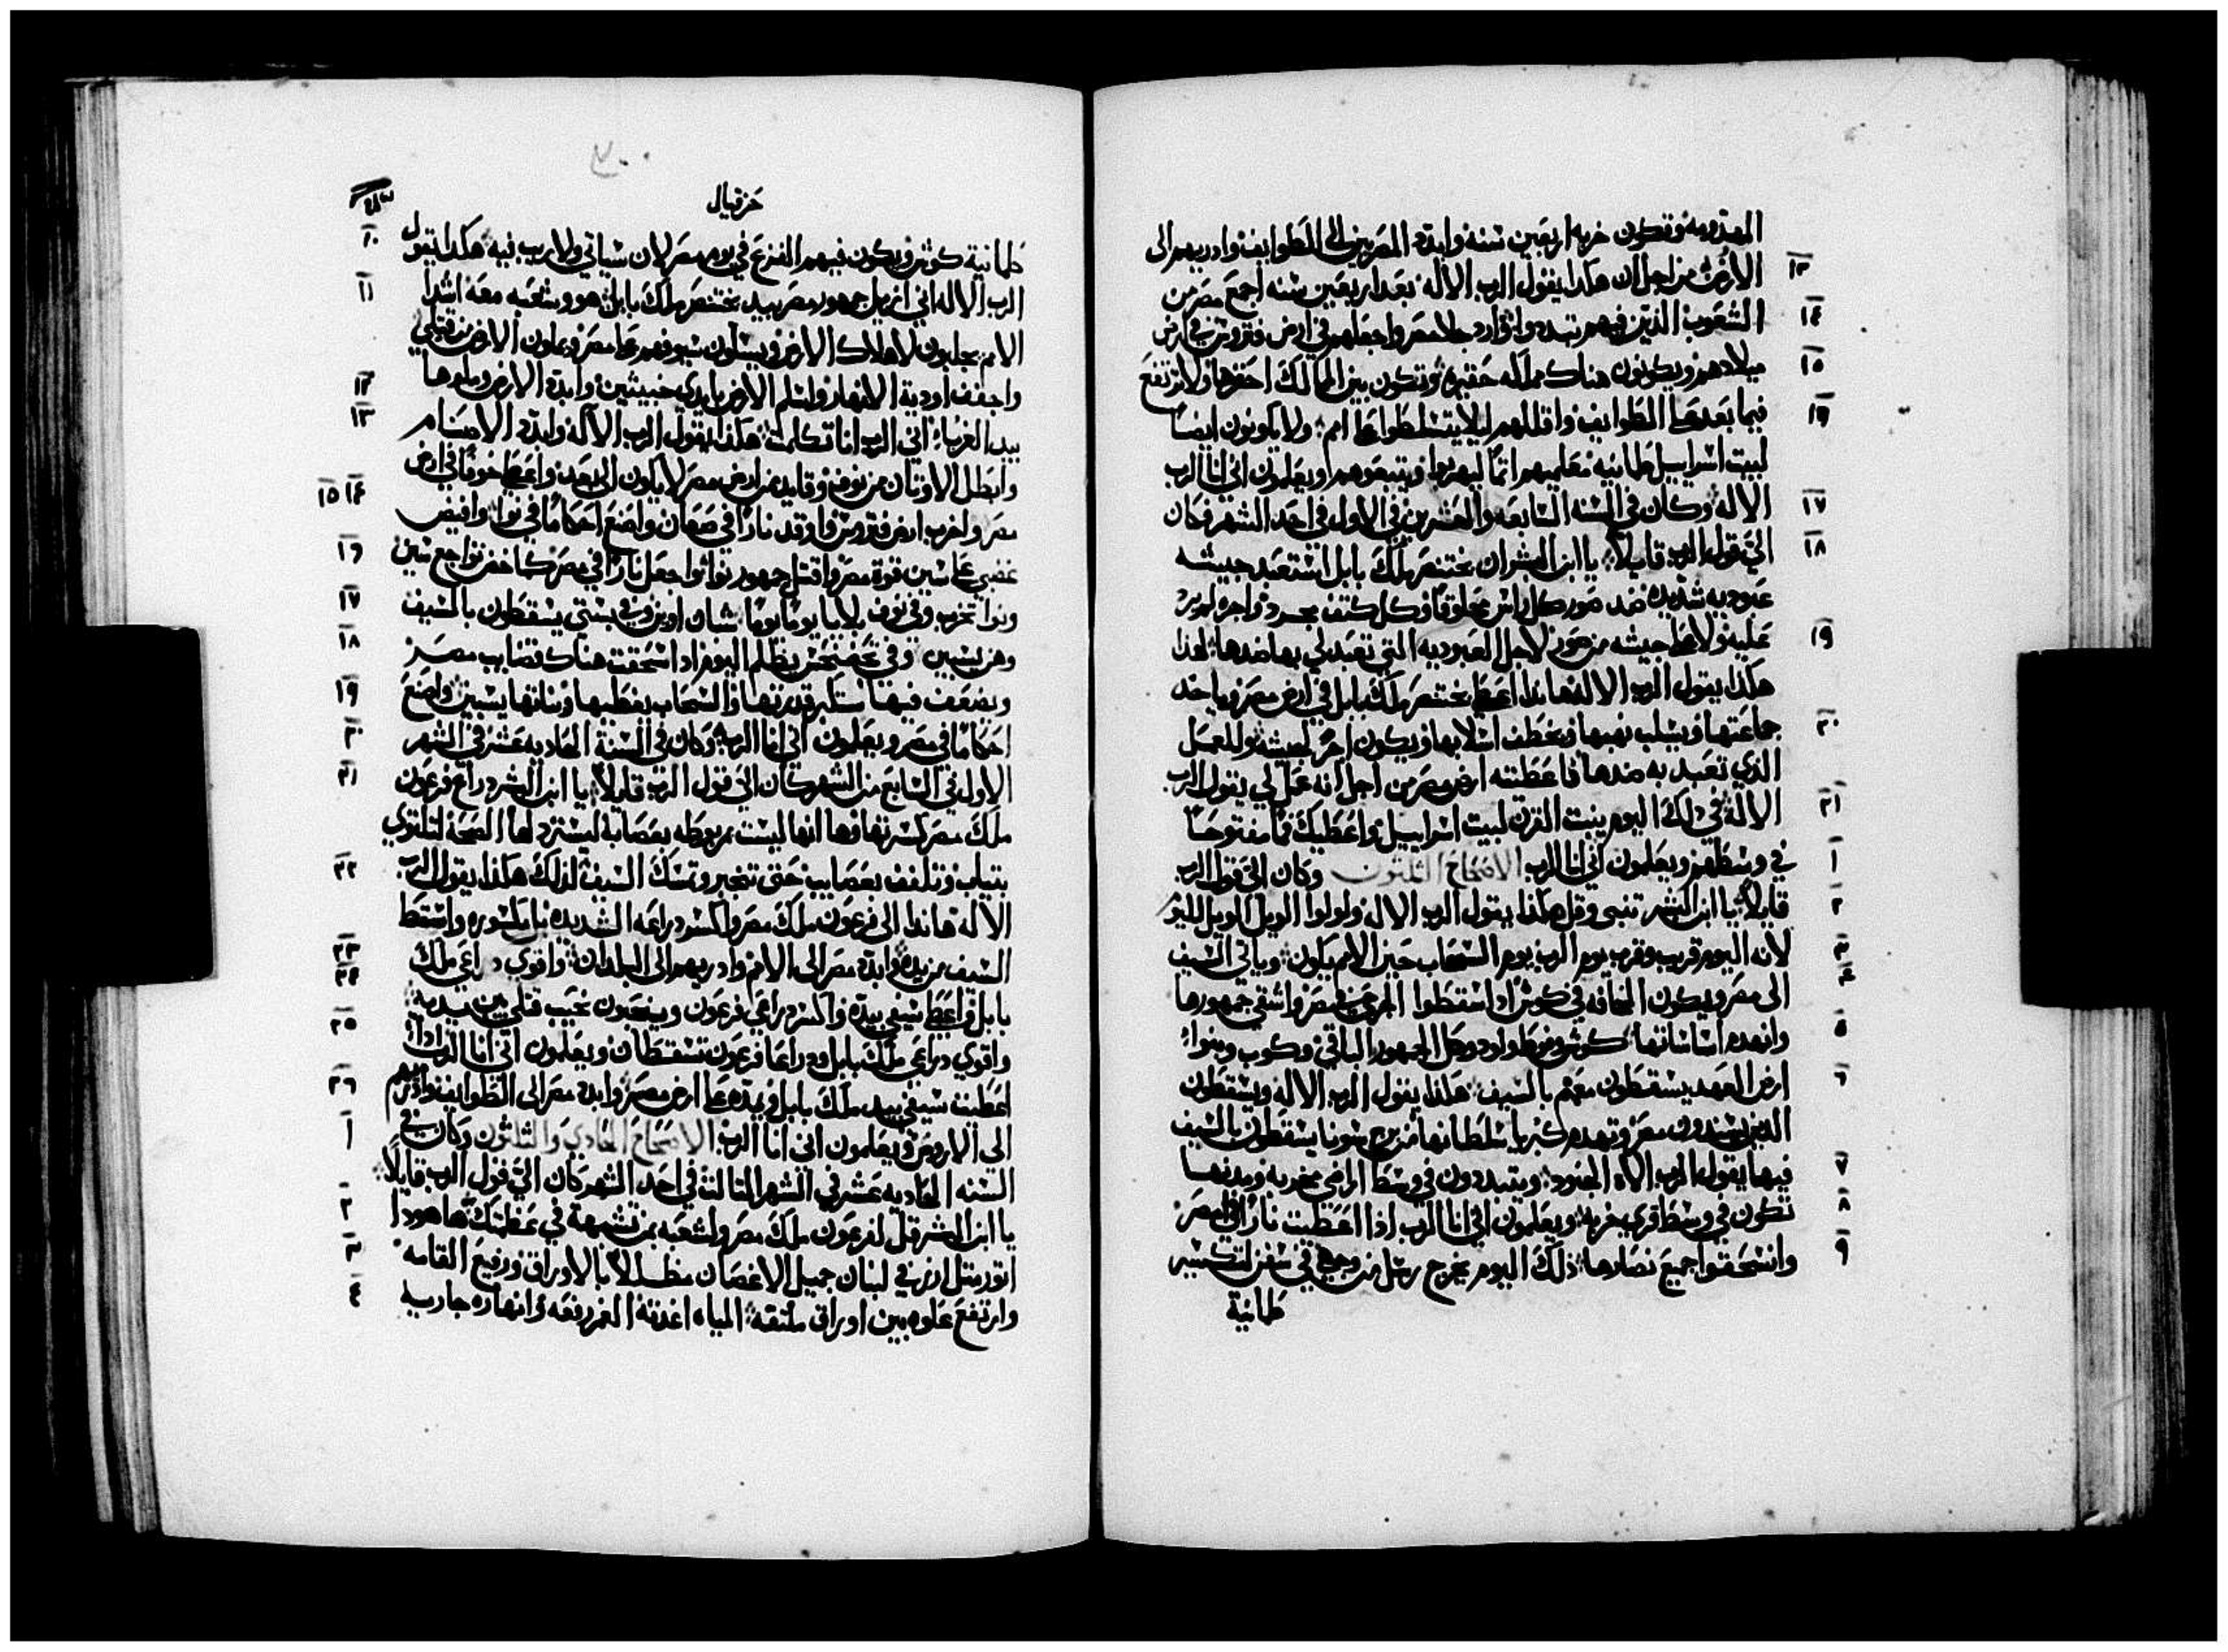 المهدومه وتكون خربه اربعين سنه وابدد المصريين الى الطوايف واذريهم الى
١٣ الارض من اجل ان هكذا يقول الرب الاله بعد اربعين سنه اجمع مصر من
١٤ الشعوب الذين فيهم تبددوا وارد جلا مصر واجعلهم في ارض فتروس في ارض
١٥ ميلادهم ويكونون هناك مملكه حقيره وتكون بين الممالك احقرها ولا ترتفع
١٦ فيما بعد على الطوايف واقللهم ليلا يتسلطوا على امم ولا يكونون ايضا
لبيت اسراييل طمانيه معلميهم اثما ليهربوا ويتبعوهم ويعلمون اني انا الرب
١٧ الاله وكان في السنه السابعه والعشرين في الاول في احد الشهر فكان
١٨ الي قول الرب قايلا يا ابن البشر ان بختنصر ملك بابل استعبد جيشه
عبوديه شديده ضد صور كل راس محلوقا وكل كتف مجرد واجره لم يرد
١٩ عليه ولا على جيشه من صور لاجل العبوديه التي تعبد لي بها ضدها لهذا
هكذا يقول الرب الاله هانذا اعطي بختنصر ملك بابل في ارض مصر وياخذ
٢٠ جماعتها ويسلب نهبها ويخطف اسلابها ويكون اجر لجيشه وللعمل
الذي تعبد به ضدها فاعطيته ارض مصر من اجل انه عمل لي يقول الرب
٢١ الاله في ذلك اليوم ينبت القرن لبيت اسراييل واعطيك فما مفتوحا
١ في وسطهم ويعلمون اني انا الرب الاصحاح الثلثون وكان الي قول الرب
٢ قايلا يا ابن البشر تنبى وقل هكذا يقول الرب الاله ولولوا الويل الويل لليوم
٣ لانه اليوم قريب وقرب يوم الرب يوم السحاب حين الامم يكون وياتي السيف
٤ الى مصر ويكون المخافه في كوش اذا اسقطوا الجرحى في مصر واشفي جمهورها
٥ وانهدم اساساتها كوش وفوط ولود وكل الجمهور الباقي وكوب وبنوا
٦ ارض العهد يسقطون معهم بالسيف هكذا يقول الرب الاله ويسقطون
الذين يسندون مصر وتهدم كبريا سلطانها من برج سونا يسقطون بالسيف
٧ فيها يقول الرب الاه الجنود ويتبددون في وسط اراضي مخربه ومدنها
٨ تكون في وسط قرى خربه ويعلمون اني انا الرب اذا اعطيت نارا في مصر
٩ وانسحقوا جميع نصارها ذلك اليوم يخرج رسل من وجهي في سفن لتكسير
طمانية
٢٠٠
حزقيال
طمانية كوش ويكون فيهم الفزع في يوم مصر لان سياتي ولا ريب فيه هكذا يقول
١٠ الرب الاله اني ازيل جمهور مصر بيد بختنصر ملك بابل
١١ هو وشعبه معه اشدا
الامم يجلبون لاهلاك الارض ويسلون سيوفهم على مصر ويملون الارض من قتلى
١٢ واجفف اودية الانهار واسلم الارض بايدي خبيثين وابدد الارض وملوها
١٣ بيد الغربا اني الرب انا تكلمت هكذا يقول الرب الاله وابدد الاصنام
وابطل الاوثان من نوف وقايد من ارض مصر لا يكون الى بعد واعطي خوفا في ارض
١٤ ١٥ مصر واخرب ارض فتروس واوقد نارا في صعان واصنع احكاما في نوا وافيض
١٦ غضبي على سين قوة مصر واقتل جمهور نوا واجعل نارا في مصر كماخض تواجع سين
١٧ ونوا تخرب وفي نوف بلايا يوما يوما شبان اوين وفي بستي يسقطون بالسيف
١٨ وهن يسبين وفي تحفنحس يظلم اليوم اذا اسحقت هناك قضايب مصر
١٩ ويضعف فيها ستكبر قدرتها والسحاب يغطيها وبناتها يسبين واصنع
٢٠ احكاما في مصر ويعلمون اني انا الرب وكان في السنة الحاديه عشر في الشهر
٢١ الاول في السابع من الشهر كان الي قول الرب قايلا يا ابن البشر ذراع فرعون
ملك مصر كسرتها وها انها ليست مربوطه بعصابة ليسترد لها الصحة لتلتوي
٢٢ بثياب وتلفف بعصايب حتى تتجبر وتمسك السيف لذلك هكذا يقول الرب
الاله هانذا الى فرعون ملك مصر واكسر ذراعه الشديده بل مكسوره واسقط
٢٣ السيف من يده وابدد مصر الى الامم واذريهم الى البلدان
٢٤ واقوي ذراعي ملك
بابل واعطي سيفي بيده واكسر ذراعي فرعون وينحبون نحيب قتلى بين يديه
٢٥ واقوي ذراعي ملك بابل وذراعا فرعون تسقطان ويعلمون اني انا الرب اذا
اعطيت سيفي بيد ملك بابل ويمده على ارض مصر
٢٦ وابدد مصر الى الطوايف واذريهم
١ الى الاروض ويعلمون اني انا الرب الاصحاح الحادي والثلثون وكان في
السنه الحاديه عشر في الشهر الثالث في احد الشهر كان الي قول الرب قايلا
٢ يا ابن البشر قل لفرعون ملك مصر ولشعبه بمن تشبهت في عظمتك
٣ ها هوذا
اثور مثل ارز في لبنان جميل الاغصان مظللا بالاوراق ورفيع القامه
٤ وارتفع علوه بين اوراق ملتفه المياه اغذته الغمر رفعه وانهاره جاريه